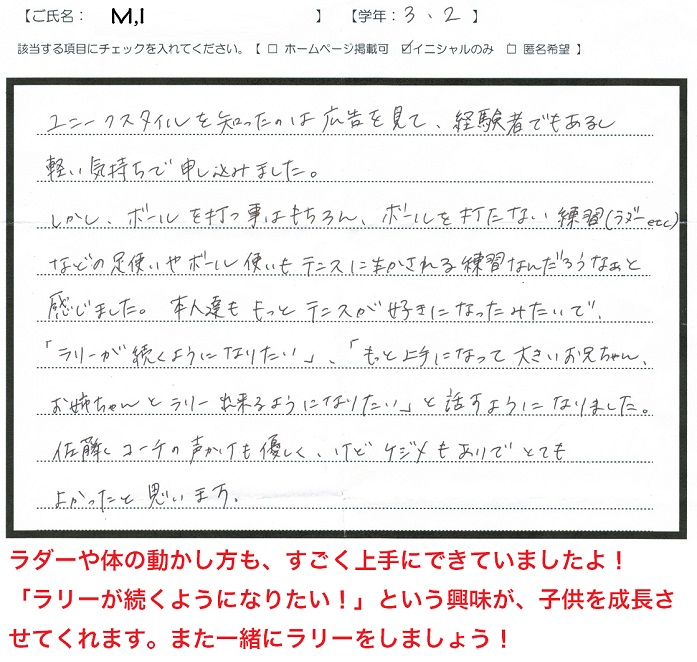 【ご氏名： M,I 】【学年：3、2】
該当する項目にチェックを入れてください。【 □ ホームページ掲載可 ☑イニシャルのみ □ 匿名希望 】
ユニークスタイルを知ったのは広告を見て、経験者でもあるし
軽い気持ちで申し込みました。
しかし、ボールを打つ事はもちろん、ボールを打たない練習(ラダーetc)
などの足使いやボール使いもテニスに生かされる練習なんだろうなぁと
感じました。本人達ももっとテニスが好きになったみたいで、
「ラリーが続くようになりたい」、「もっと上手になって大きいお兄ちゃん、
お姉ちゃんとラリー出来るようになりたい」と話すようになりました。
佐藤コーチの声かけも優しく、けどケジメもありでとても
よかったと思います。
ラダーや体の動かし方も、すごく上手にできていましたよ！
「ラリーが続くようになりたい！」という興味が、子供を成長さ
せてくれます。また一緒にラリーをしましょう！